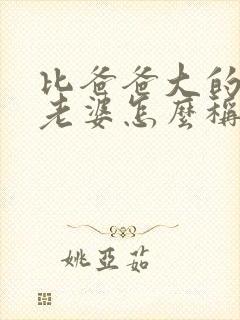 比爸爸大的
老婆怎麼稱
姚亞茹